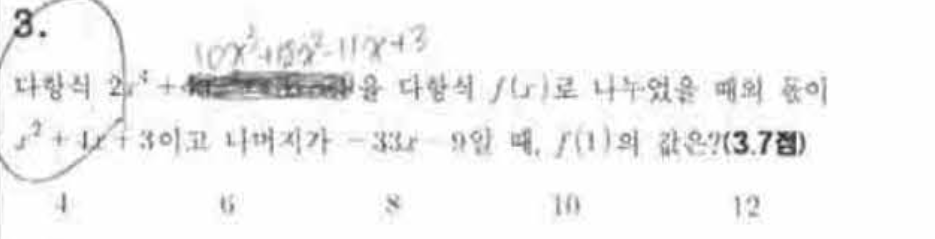 3.
10x³+18x²-11x+3
다항식 2x⁴+을 다항식 f(x)로 나누었을 때의 몫이
x²+4x+3이고 나머지가 -33x-9일 때, f(1)의 값은?(3.7점)
4 6 8 10 12